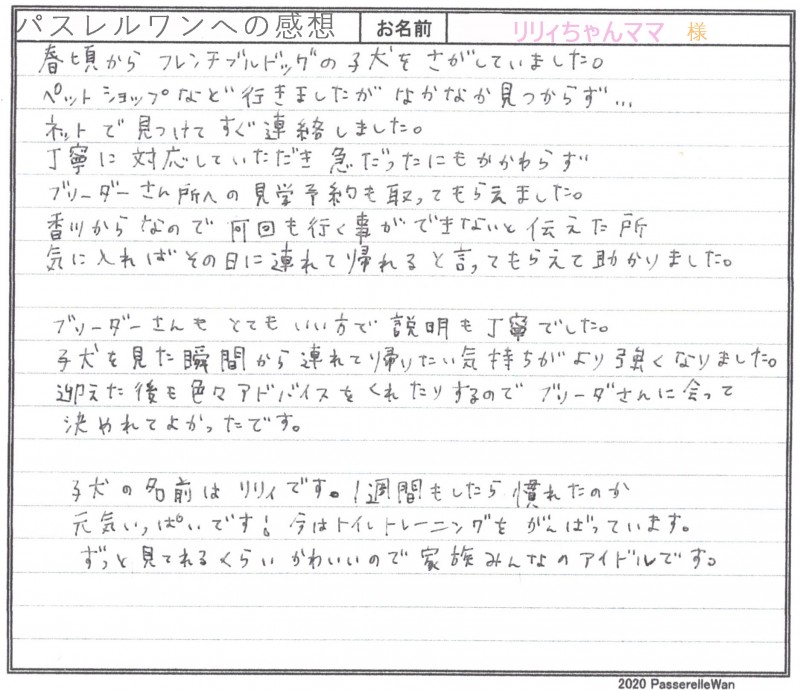 パスレルワンへの感想 お名前 リリィちゃんママ 様
春頃から フレンチブルドッグの子犬をさがしていました。
ペットショップなど行きましたがなかなか見つからず…
ネットで見つけてすぐ連絡しました。
丁寧に対応していただき急だったにもかかわらず
ブリーダーさん所への見学予約も取ってもらえました。
香川からなので何回も行く事ができないと伝えた所
気に入ればその日に連れて帰れると言ってもらえて助かりました。
ブリーダーさんもとてもいい方で説明も丁寧でした。
子犬を見た瞬間から連れて帰りたい気持ちがより強くなりました。
迎えた後も色々アドバイスをくれたりするのでブリーダさんに会って
決めれてよかったです。
子犬の名前はリリィです。1週間もしたら慣れたのか
元気いっぱいです!今はトイレトレーニングをがんばっています。
ずっと見てれるくらいかわいいので家族みんなのアイドルです。
2020 PasserelleWan